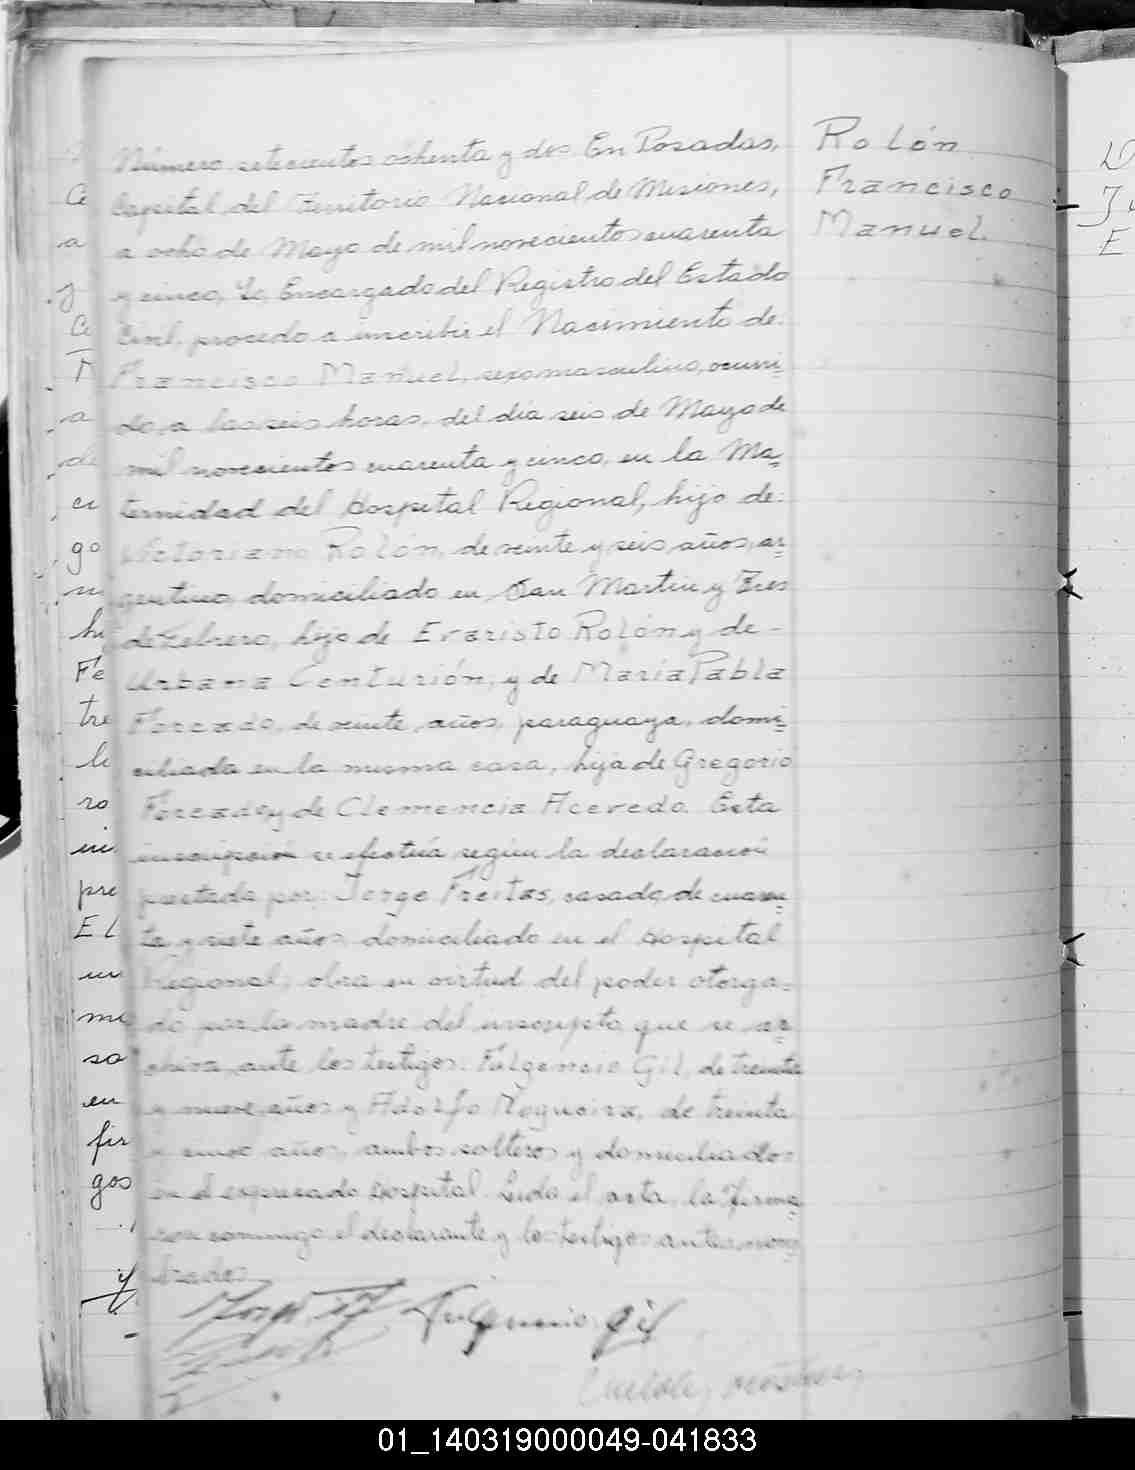 Rolón
Francisco
Manuel.
Número setecientos ochenta y dos En Posadas,
Capital del Territorio Nacional de Misiones,
a ocho de Mayo de mil novecientos cuarenta
y cinco, Yo, Encargado del Registro del Estado
Civil, procedo a inscribir el Nacimiento de:
Francisco Manuel, sexo masculino, ocurri-
do, a las seis horas, del día seis de Mayo de
mil novecientos cuarenta y cinco, en la Ma-
ternidad del Hospital Regional, hijo de:
Victoriano Rolón, de veinte y seis, años, ar-
gentino, domiciliado en San Martin y Tres
de Febrero, hijo de Evaristo Rolón y de -
Urbana Centurión, y de María Pabla
Forcado, de veinte, años, paraguaya, domi-
ciliada en la misma casa, hija de Gregorio
Forcado y de Clemencia Acevedo. Esta
inscripción se efectúa según la declaración
prestada por: Jorge Freitas, casado, de cuaren-
ta y siete años, domiciliado en el Hospital
Regional, obra en virtud del poder otorga-
do por la madre del inscripto, que se ar-
chiva, ante los testigos: Fulgencio Gil, de treinta
y nueve, años y Adolfo Nogueira, de treinta
y cinco años, ambos solteros y domiciliados
en el expresado Hospital. Leida el acta, la firma-
ron conmigo el declarante y los testigos antes nom-
brados
Fulgencio Gil
01_140319000049-041833